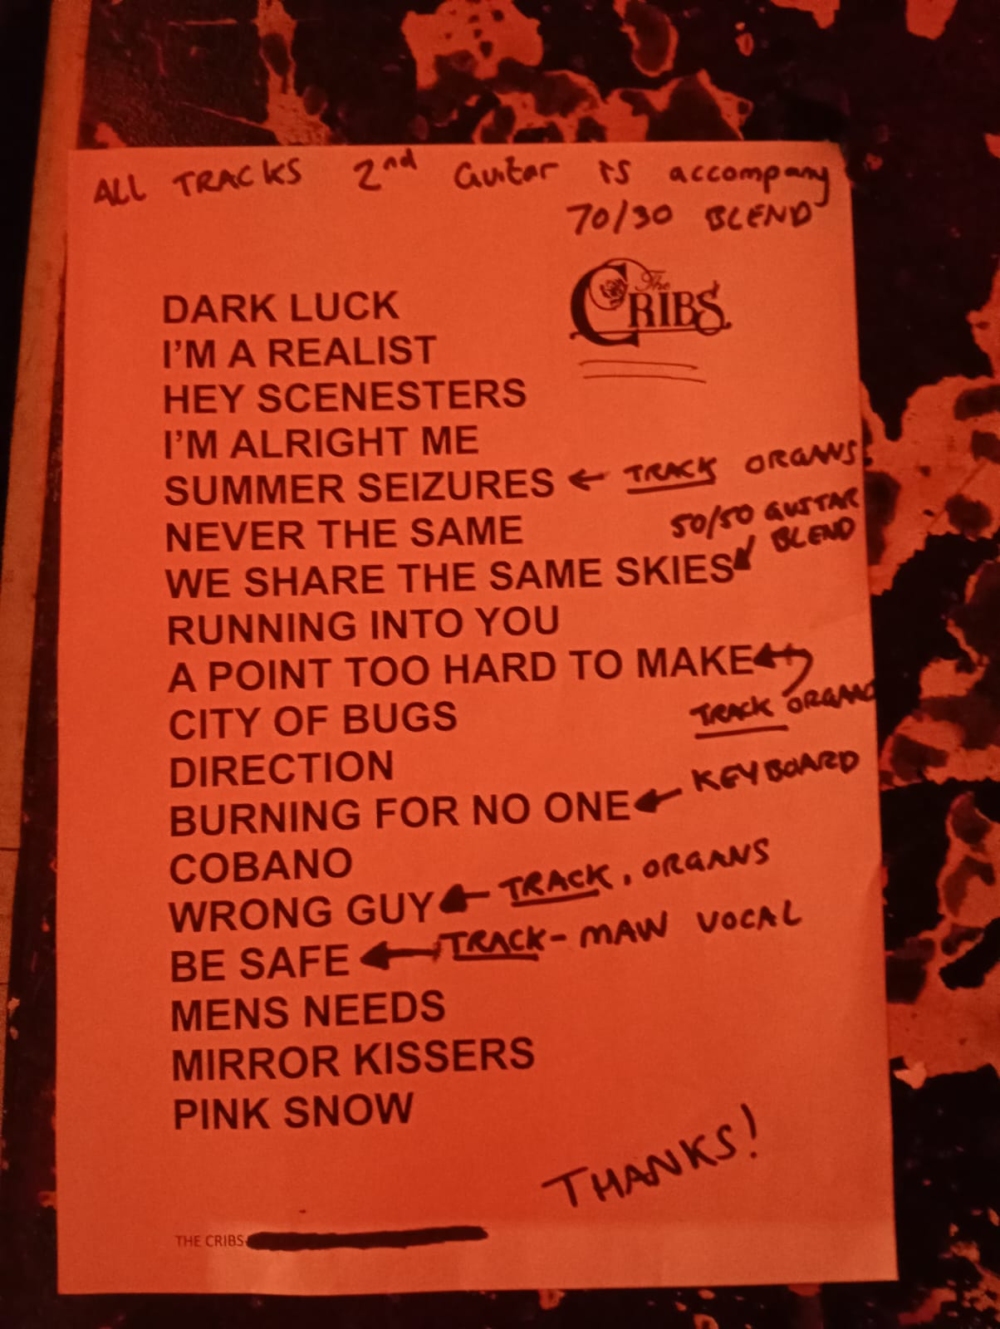 ALL TRACKS 2nd Guitar is accompany
70/30 BLEND
The CRIBS
DARK LUCK
I'M A REALIST
HEY SCENESTERS
I'M ALRIGHT ME
SUMMER SEIZURES ← TRACK ORGANS
NEVER THE SAME
50/50 GUITAR BLEND
WE SHARE THE SAME SKIES
RUNNING INTO YOU
A POINT TOO HARD TO MAKE
TRACK ORGANS
CITY OF BUGS
DIRECTION
BURNING FOR NO ONE ← KEYBOARD
COBANO
WRONG GUY ← TRACK, ORGANS
BE SAFE ← TRACK - MAIN VOCAL
MENS NEEDS
MIRROR KISSERS
PINK SNOW
THANKS!
THE CRIBS